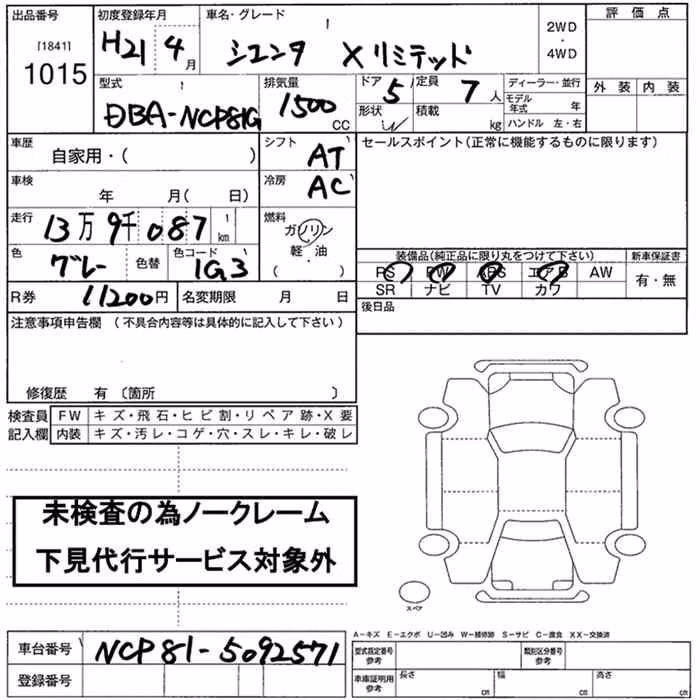 出品番号 初度登録年月 車名・グレード 評価点
[1841] H21 4月 シエンタ Xリミテッド 2WD・4WD
1015 外装 内装
型式 排気量 ドア 5 定員 7人 ディーラー・並行
DBA-NCP81G 1500 CC 形状 積載 kg モデル年式 年
ハンドル 左・右
車歴 自家用・( ) シフト AT セールスポイント(正常に機能するものに限ります)
車検 年 月( 日) 冷房 AC
走行 13万9千087km 燃料 ガソリン・軽・油 ( )
色 グレー 色替 色コード 1G3 装備品(純正品に限り丸をつけて下さい) 新車保証書
PS PW ABS エアB AW 有・無
R券 11200円 名変期限 月 日 SR ナビ TV カワ
注意事項申告欄 (不具合内容等は具体的に記入して下さい) 後日品
修復歴 有 〔箇所 〕
検査員 FW キズ・飛石・ヒビ割・リペア跡・X要
記入欄 内装 キズ・汚レ・コゲ・穴・スレ・キレ・破レ
未検査の為ノークレーム
下見代行サービス対象外
スペア
A-キズ E-エクボ U-凹み W-補修跡 S-サビ C-腐食 XX-交換済
車台番号 NCP81-5092571 型式指定番号 参考 類別区分番号 参考
登録番号 車庫証明用 参考 長さ cm 幅 cm 高さ cm